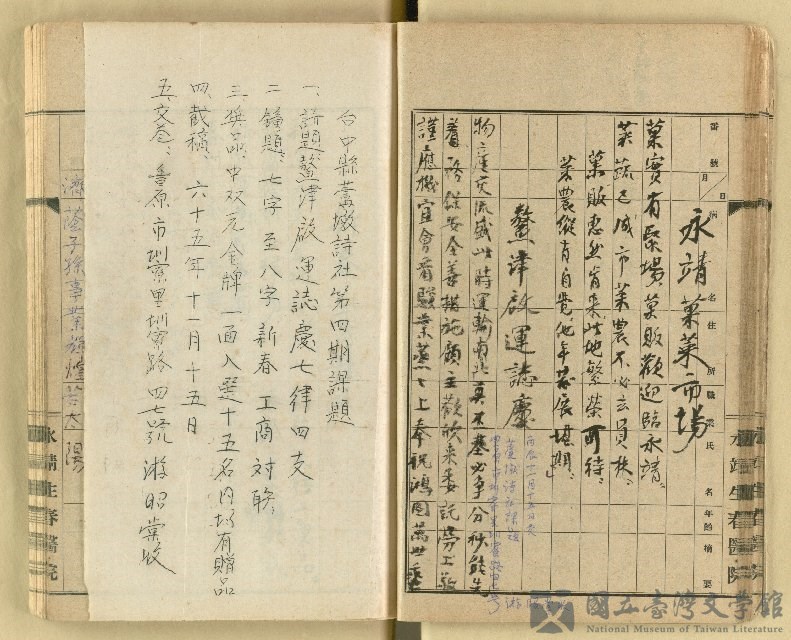 永靖菓菜市場
菓實有聚場菓販歡迎臨永靖。
菜蔬已成市菜農不必去員林。
菓販惠然肯来此地繁榮可待。
菜農縱有自覺他年發展堪期。
鰲津啟運誌慶
物產交流盛此時運輸南北莫不基必爭分秒能先
着務保安全善措施顧主歡欣来委託勞工敬
謹應機宜會看驥業蒸々上奉祝鴻圖萬世垂
番號
月 日
病名
住所
職業
氏名
年齡
摘要
永靖生春醫院
台中縣蘆墩詩社第四期課題
一、詩題鰲津啟運誌慶七律四支
二、鐘題、七字至八字新春工商対聯。
三、奨品、中双元金牌一面入選十五名内均有贈品
四、截稿、六十五年十一月十五日
五、交卷、豊原市圳寮里圳寮路四七號游昭棠收
濟蔭子孫事業輝煌若太陽
永靖生春醫院
國立臺灣文學館
National Museum of Taiwan Literature